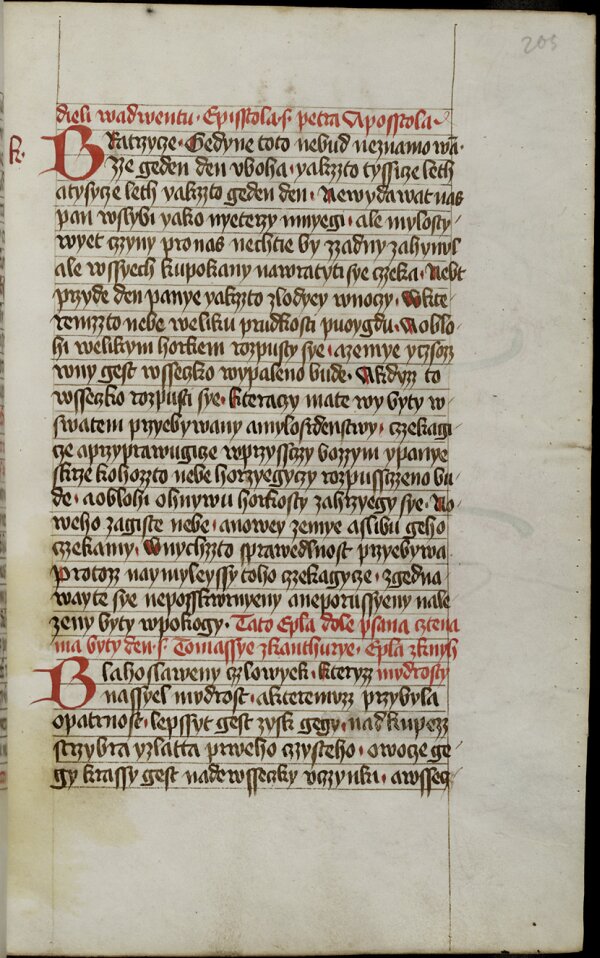 205
dieli wadwentu · Episstola · s · petra Aposstola ·
k · BRatrzyze · Gedyne toto nebud neznamo wā ·
zze geden den vboha · yakzzto tyssicze leth
atysycze leth yakzto geden den · Newydawat nas
pan wslybi yako nyeterzy mnyegi · ale mylosty
wyet czyny pro nas nechtie by zzadny zahynul
ale wssyech kupokany nawratyti sye czeka · Nebt
przyde den panye yakzto zlodyey wnoczy · Wkte
remzzto nebe weliku prudkosti puoygdu · Aoblo
hi welikym horkem rozpusty sye · azemye yczsozz
wny gest wsseczko wypaleno bude · Akdyzz to
wsseczko rozpusti sye · kteraczy mate wy byty w
swatem przyebywany amylosrdenstwy · czekagi
cze aprzyprawugicze wprzyssczzy bozzym ypanye
skrze kohozzto nebe horzyegyczy rozpussczzeno bu
de · aoblohi ohnywu horkosty zahrzyegy sye · No
weho zagiste nebe · anowey zemye aslibu geho
czzekamy · Wnychzzto sprawedlnost przyebywa ·
Protozz naymyleyssy toho czzekagycze · zgedna
wayte sye neposskwrnyeny aneporussyeny nale
zeny byty wpokogy · Tato Epla dole psana cztena
ma byty den · s · Tomassye zkanthurye · Epla zknyh
BLahoslaweny czlowyek · kteryzz mudrosty
nassyel mudrost · akteremuzz przybyla
opatrnost · lepssyt gest zysk gegy · nad kupezz
strzybra yzlatta prweho czysteho · owocze ge
gy krassy gest nadewsseczky vczynki · awssecz